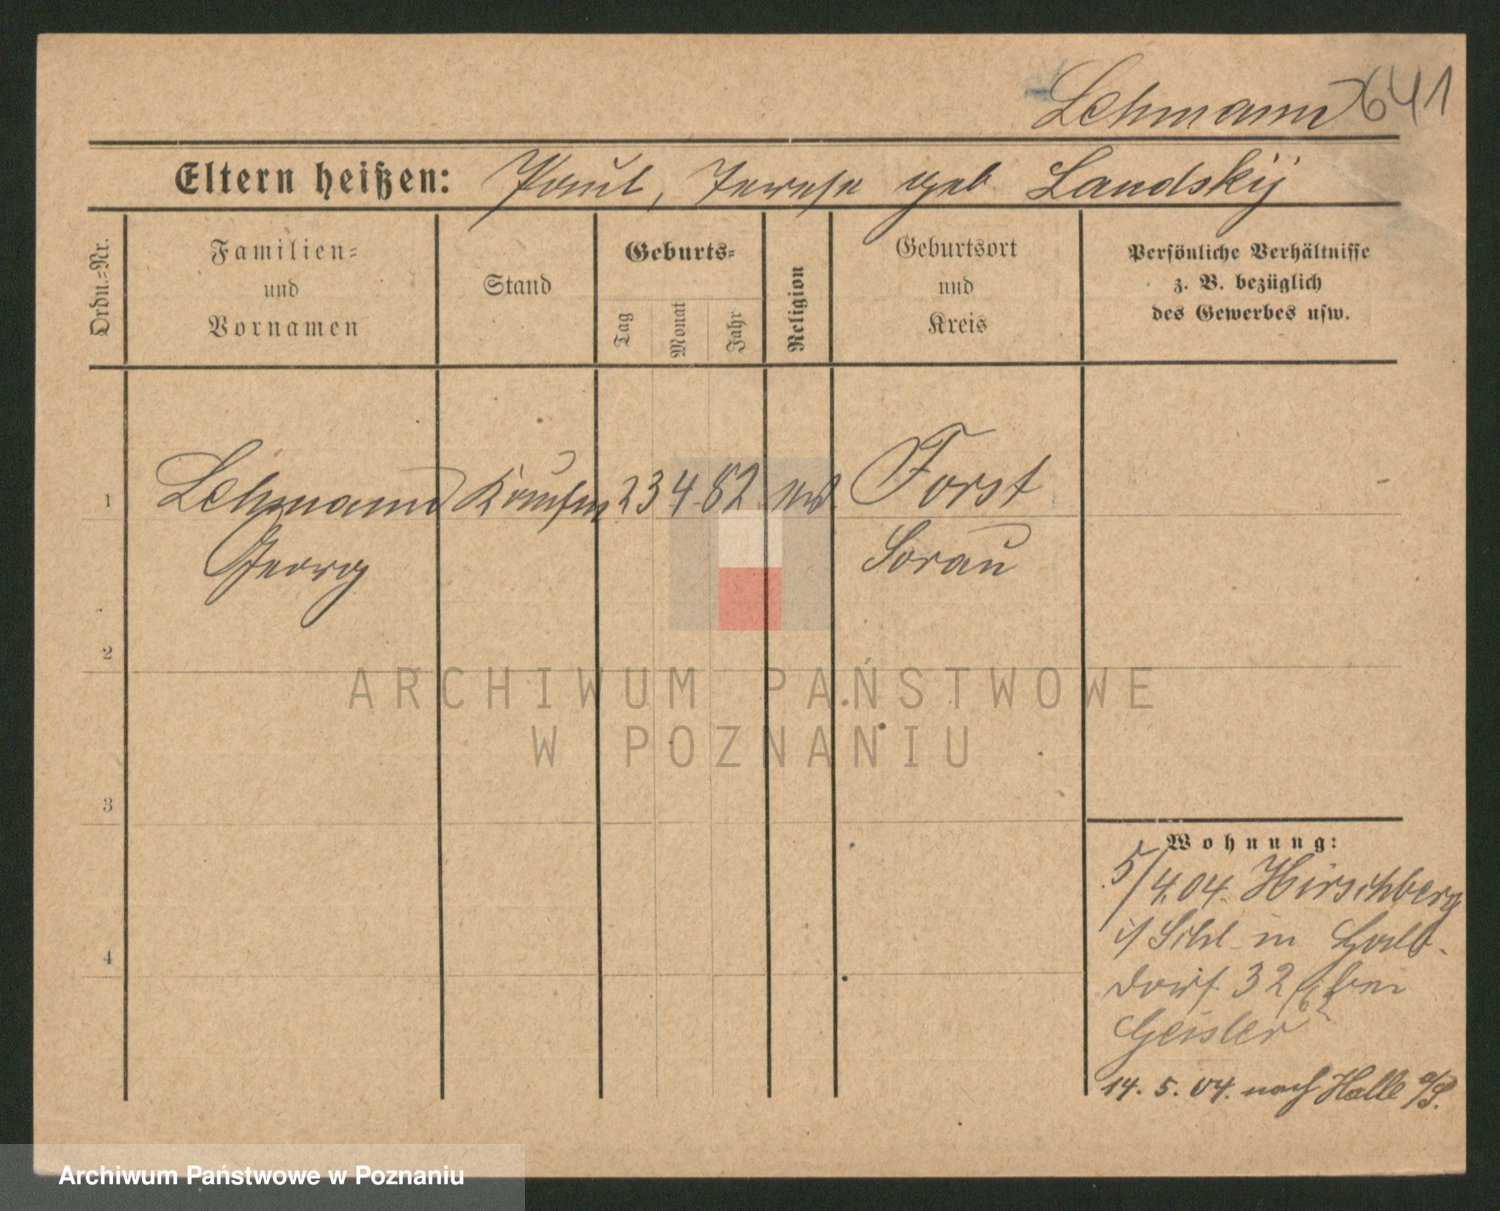 Lehmann 641
Eltern heißen: Paul, Terese geb. Landskij
Ordn.-Nr.
Familien-
und
Vornamen
Stand
Geburts-
Tag
Monat
Jahr
Religion
Geburtsort
und
Kreis
Persönliche Verhältnisse
z. B. bezüglich
des Gewerbes usw.
1 Lehmann Kaufm 23 4 82 Forst
Georg Sorau
2
3
4
Wohnung:
5/4.04. Hirschberg
i/Schl in
dorf. 32 bei
Geisler
14. 5. 04. nach Halle a/S.
ARCHIWUM PAŃSTWOWE
W POZNANIU
Archiwum Państwowe w Poznaniu